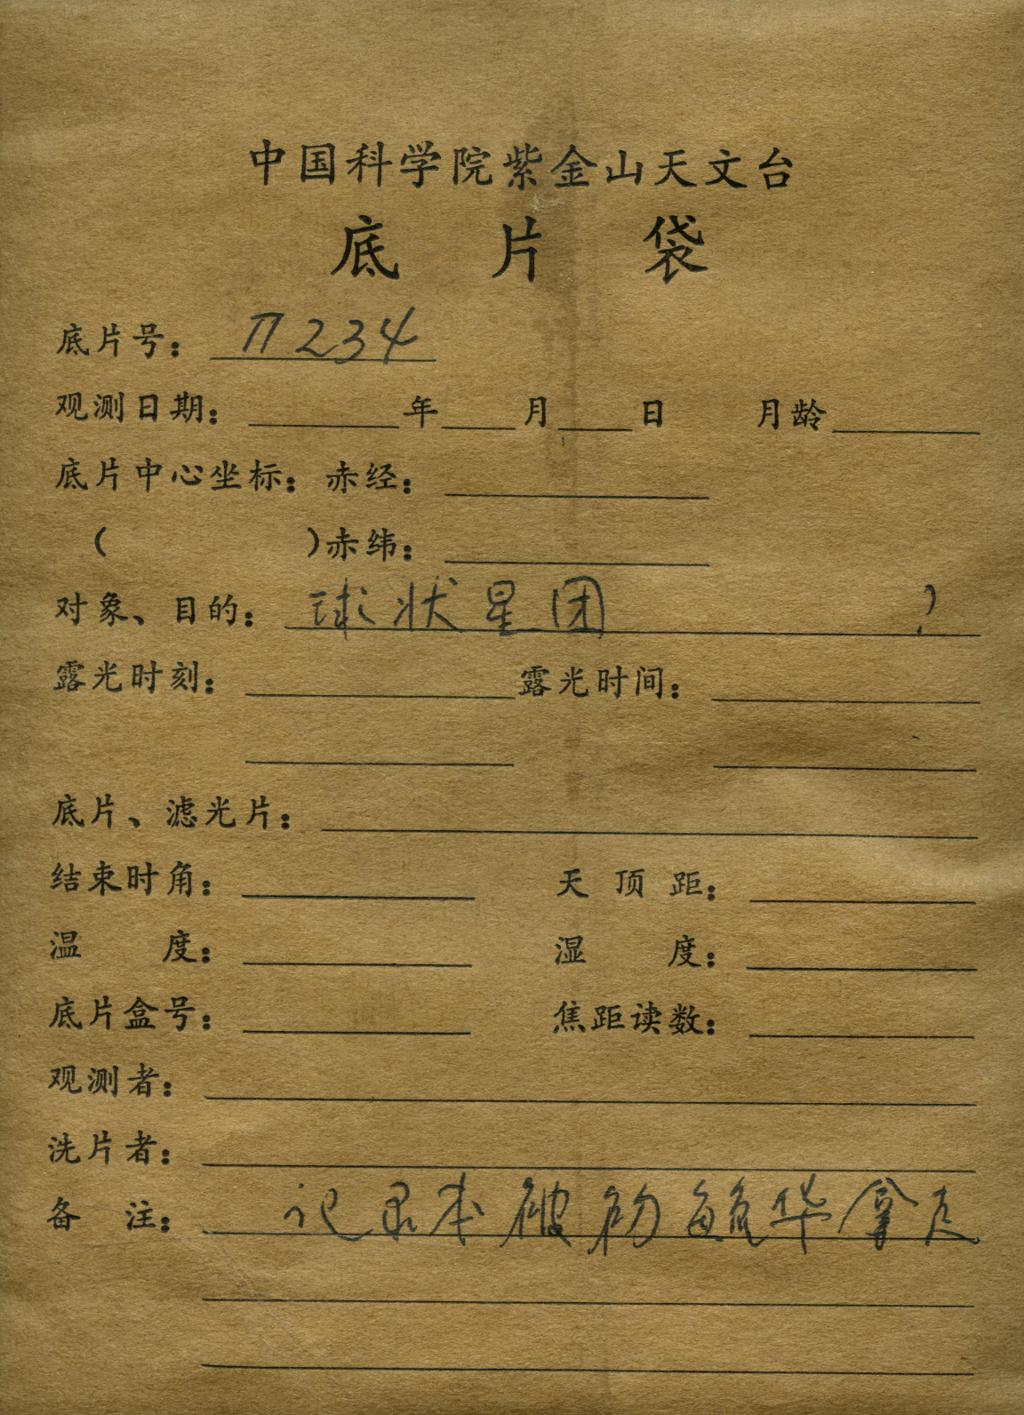 中国科学院紫金山天文台
底片袋
底片号：Π234
观测日期：年月日 月龄
底片中心坐标：赤经：
（ ）赤纬：
对象、目的：球状星团 ？
露光时刻： 露光时间：
底片、滤光片：
结束时角： 天顶距：
温度： 湿度：
底片盒号： 焦距读数：
观测者：
洗片者：
备注：记录本被 毓华拿走